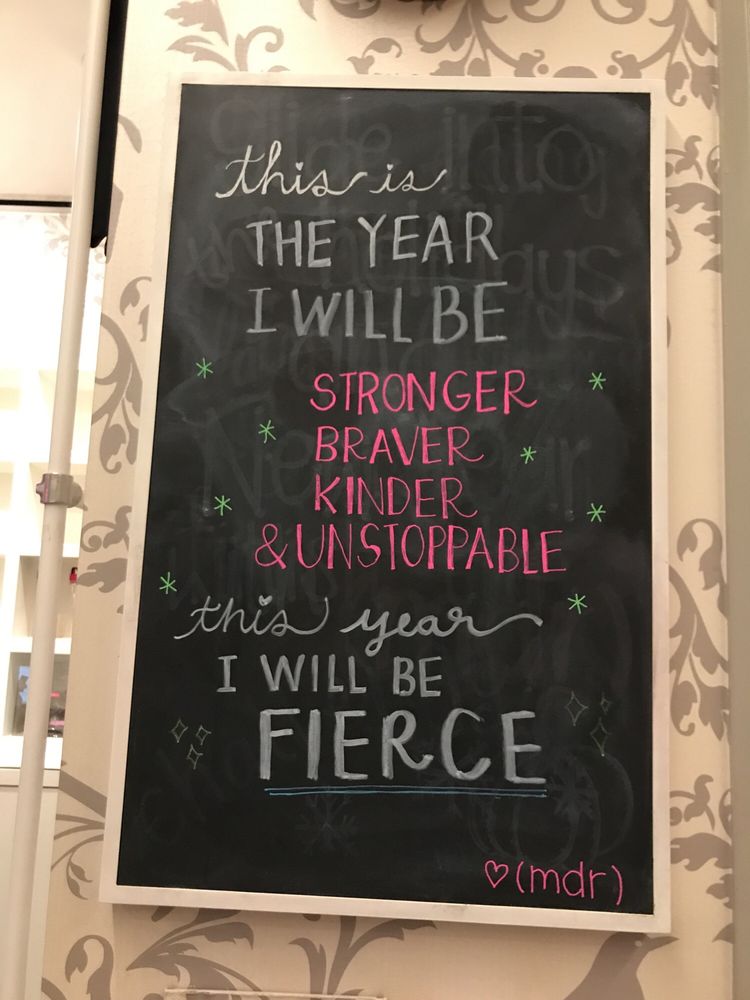 this is
THE YEAR
I WILL BE
STRONGER
BRAVER
KINDER
& UNSTOPPABLE
this year
I WILL BE
FIERCE
♡(mdr)